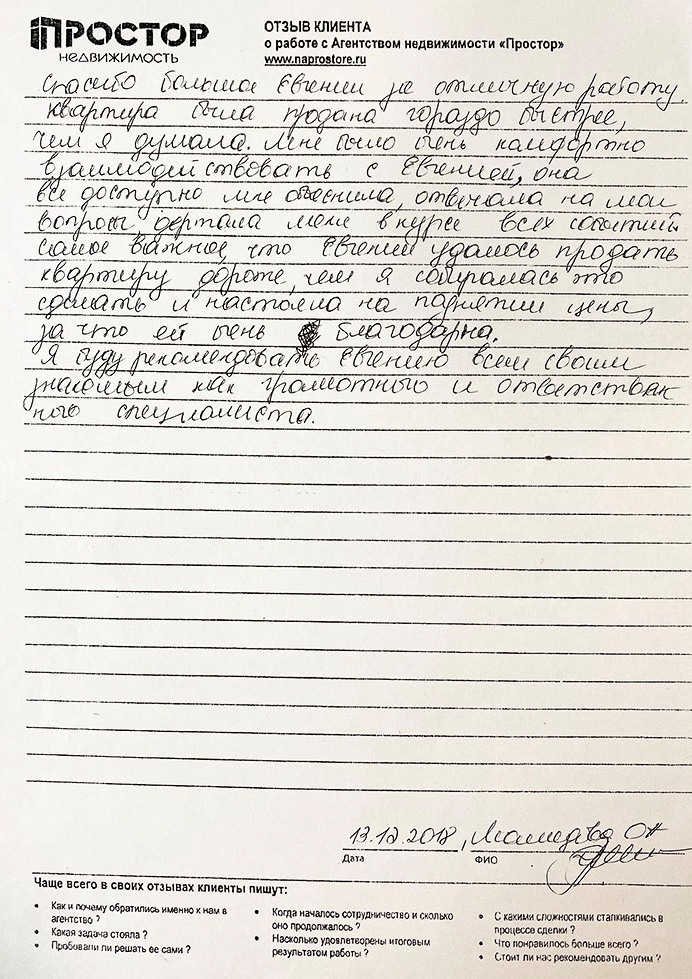 ПРОСТОР
НЕДВИЖИМОСТЬ
ОТЗЫВ КЛИЕНТА
о работе с Агентством недвижимости «Простор»
www.naprostore.ru
Спасибо большое Евгении за отличную работу.
Квартира была продана гораздо быстрее,
чем я думала. Мне было очень комфортно
взаимодействовать с Евгенией, она
все доступно мне объяснила, отвечала на мои
вопросы, держала меня в курсе всех событий
самое важное, что Евгении удалось продать
квартиру дороже, чем я собиралась это
сделать и настояла на поднятии цены,
за что ей очень благодарна.
Я буду рекомендовать Евгению всем своим
знакомым как грамотного и ответствен
ного специалиста.
13.12.2018, Мамедова
Дата ФИО
Чаще всего в своих отзывах клиенты пишут:
• Как и почему обратились именно к нам в
агентство ?
• Какая задача стояла ?
• Пробовали ли решать ее сами ?
• Когда началось сотрудничество и сколько
оно продолжалось ?
• Насколько удовлетворены итоговым
результатом работы ?
• С какими сложностями сталкивались в
процессе сделки ?
• Что понравилось больше всего ?
• Стоит ли нас рекомендовать другим ?